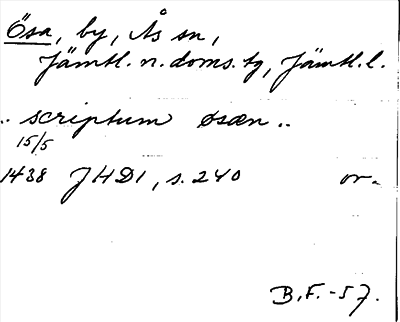 Ösa, by, Ås sn,
Jämtl. n. doms. tg, Jämtl. l.
.. scriptum øsæn ..
15/5
1438 JHD1, s. 240 or.
B.F. -57.